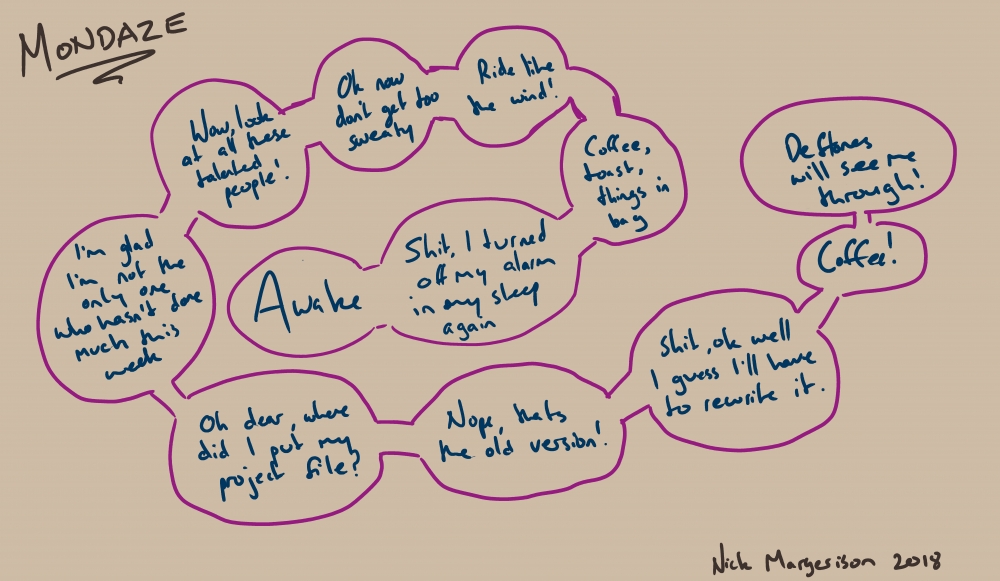 MONDAZE
Awake
Shit, I turned
off my alarm
in my sleep
again
Coffee,
toast,
things in
bag
Ride like
the wind!
Ok now
don't get too
sweaty
Wow, look
at all these
talented
people!
I'm glad
I'm not the
only one
who hasn't done
much this
week
Oh dear, where
did I put my
project file?
Nope, thats
the old version!
Shit, ok well
I guess I'll have
to rewrite it.
Coffee!
Deftones
will see me
through!
Nick Margerison 2018